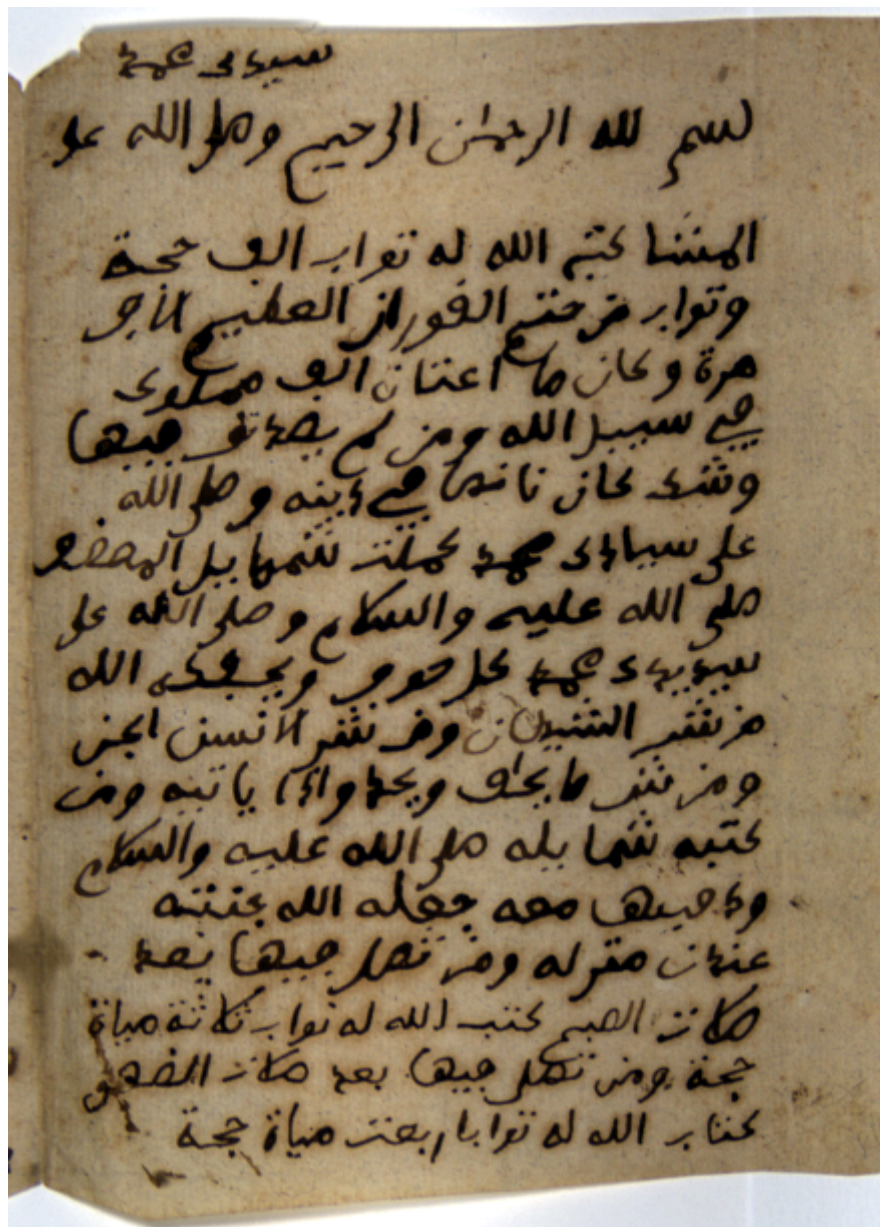 سيدى محمد
بسم لله الرحمان الرحيم وصلى الله على
المنشا كتبه الله له ثواب الف حجة
وثواب من ختم القوران العظيم الاجر
مرة وكان ما اعتان الف مملوى
في سبيل الله ومن لم يصدق فيها
وشك كان نا في دينه وصلى الله
على سيدى محمد كملت شمايل
صلى الله عليه والسلام وصلى الله على
سيديدى محمد كل حوم ويحفظه الله
من شر الشيطان ومن شر الانس الجن
ومن شر ما يخاف ويحذ واذا ياتيه ومن
كتبه شمايله صلى الله عليه والسلام
ودفيها معه جعله الله جنته
عندن منزله ومن نضر فيها بعد
صلات الصبح كتب الله له ثواب ثلاثة مياة
حجة ومن نضر فيها بعد صلات الضهر
كتاب الله له ثواب اربعت مياة حجة